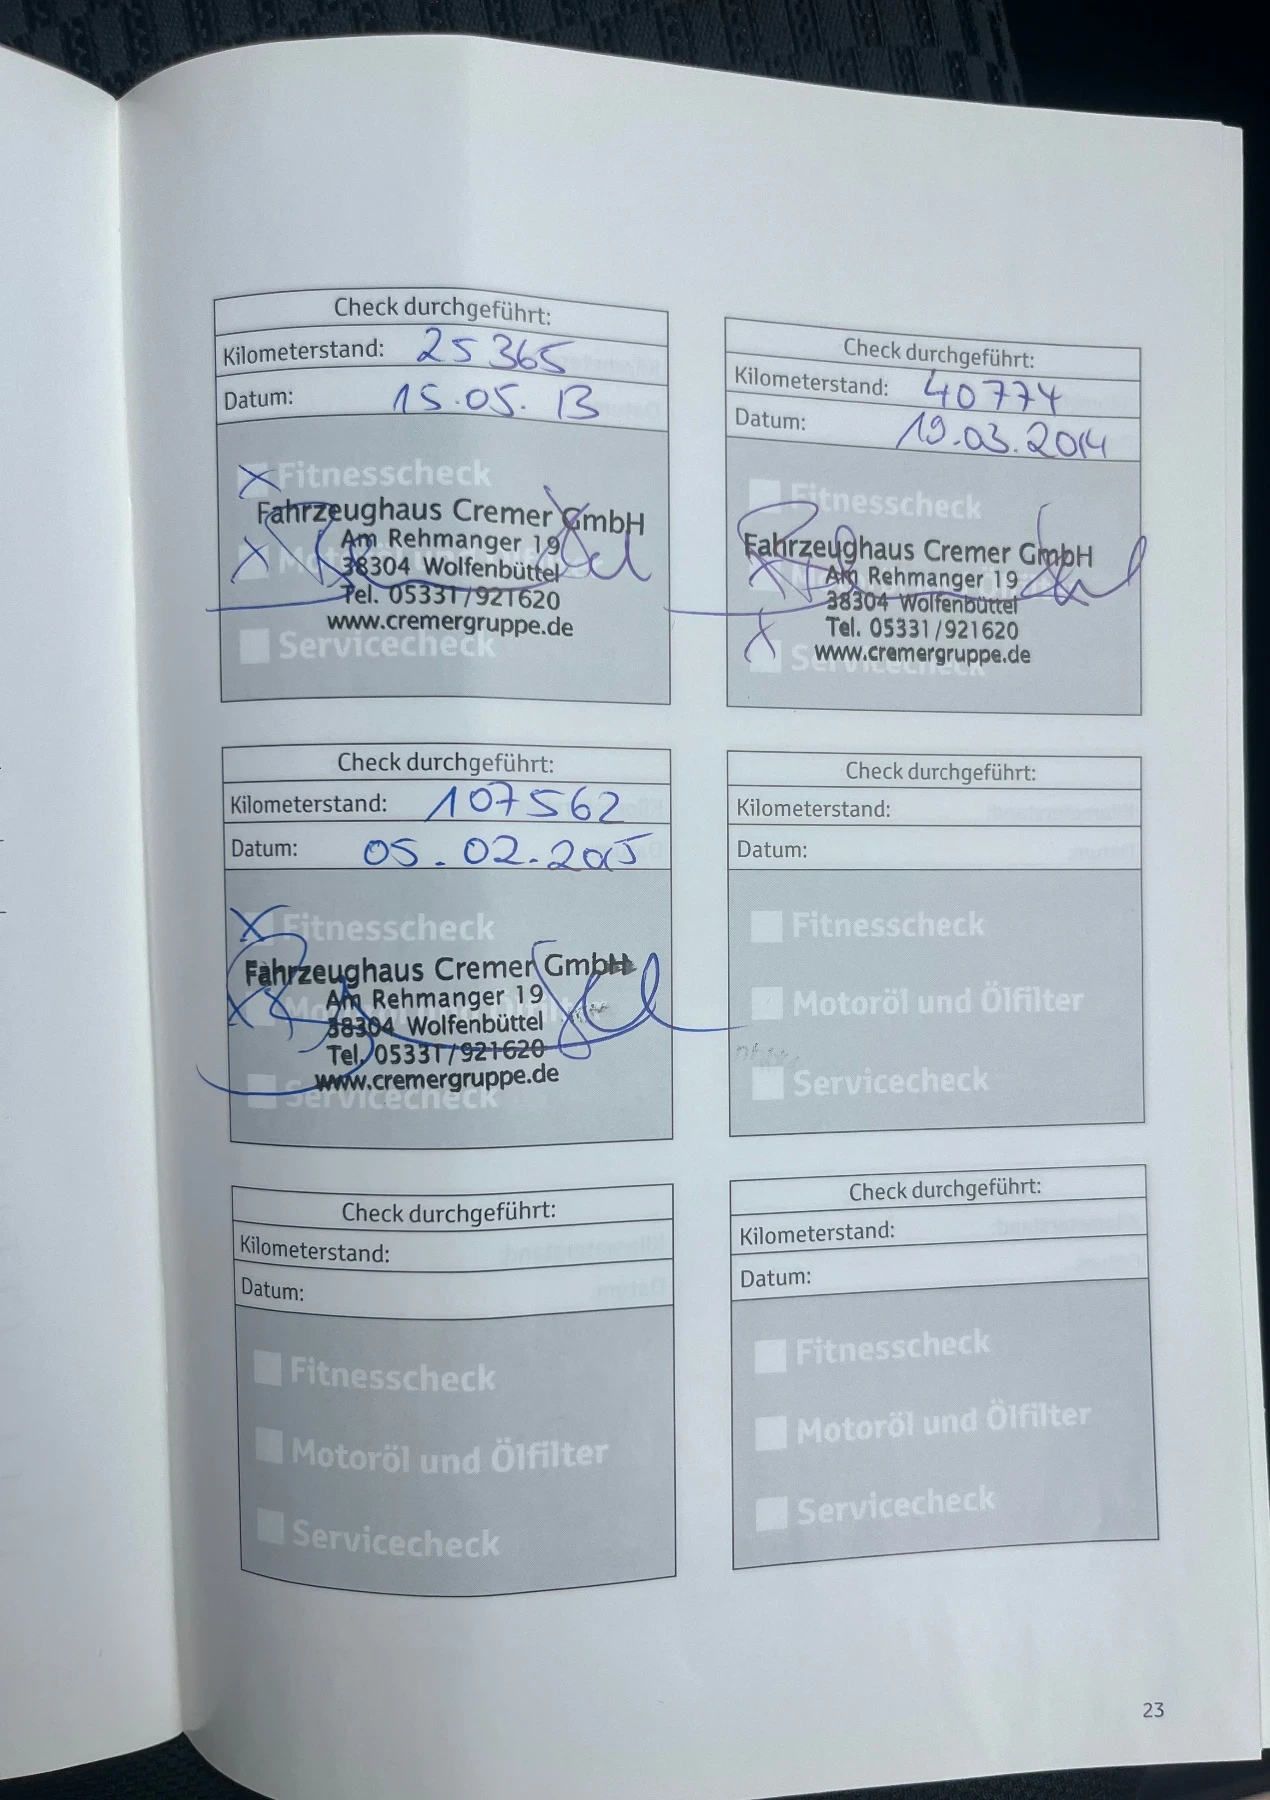 Check durchgeführt:
Kilometerstand: 25365
Datum: 15.05.13
Fitnesscheck
Motoröl und Ölfilter
Servicecheck
Fahrzeughaus Cremer GmbH
Am Rehmanger 19
38304 Wolfenbüttel
Tel. 05331/921620
www.cremergruppe.de
Check durchgeführt:
Kilometerstand: 40774
Datum: 19.03.2014
Fitnesscheck
Motoröl und Ölfilter
Servicecheck
Fahrzeughaus Cremer GmbH
Am Rehmanger 19
38304 Wolfenbüttel
Tel. 05331/921620
www.cremergruppe.de
Check durchgeführt:
Kilometerstand: 107562
Datum: 05.02.2015
Fitnesscheck
Motoröl und Ölfilter
Servicecheck
Fahrzeughaus Cremer GmbH
Am Rehmanger 19
38304 Wolfenbüttel
Tel. 05331/921620
www.cremergruppe.de
Check durchgeführt:
Kilometerstand:
Datum:
Fitnesscheck
Motoröl und Ölfilter
Servicecheck
Check durchgeführt:
Kilometerstand:
Datum:
Fitnesscheck
Motoröl und Ölfilter
Servicecheck
Check durchgeführt:
Kilometerstand:
Datum:
Fitnesscheck
Motoröl und Ölfilter
Servicecheck
23